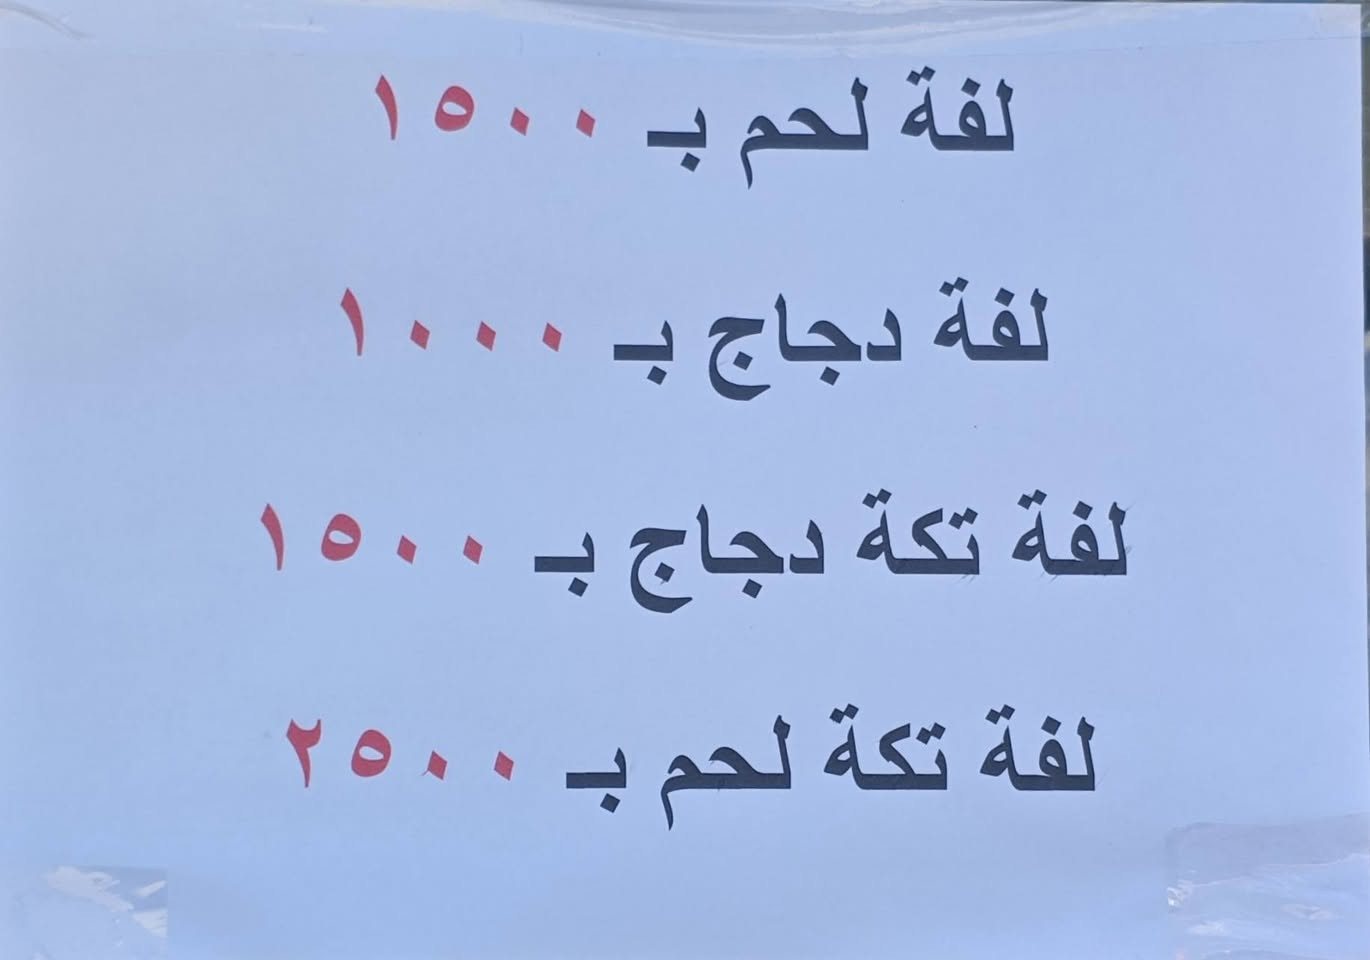 لفة لحم بـ ١٥٠٠
لفة دجاج بـ ١٠٠٠
لفة تكة دجاج بـ ١٥٠٠
لفة تكة لحم بـ ٢٥٠٠